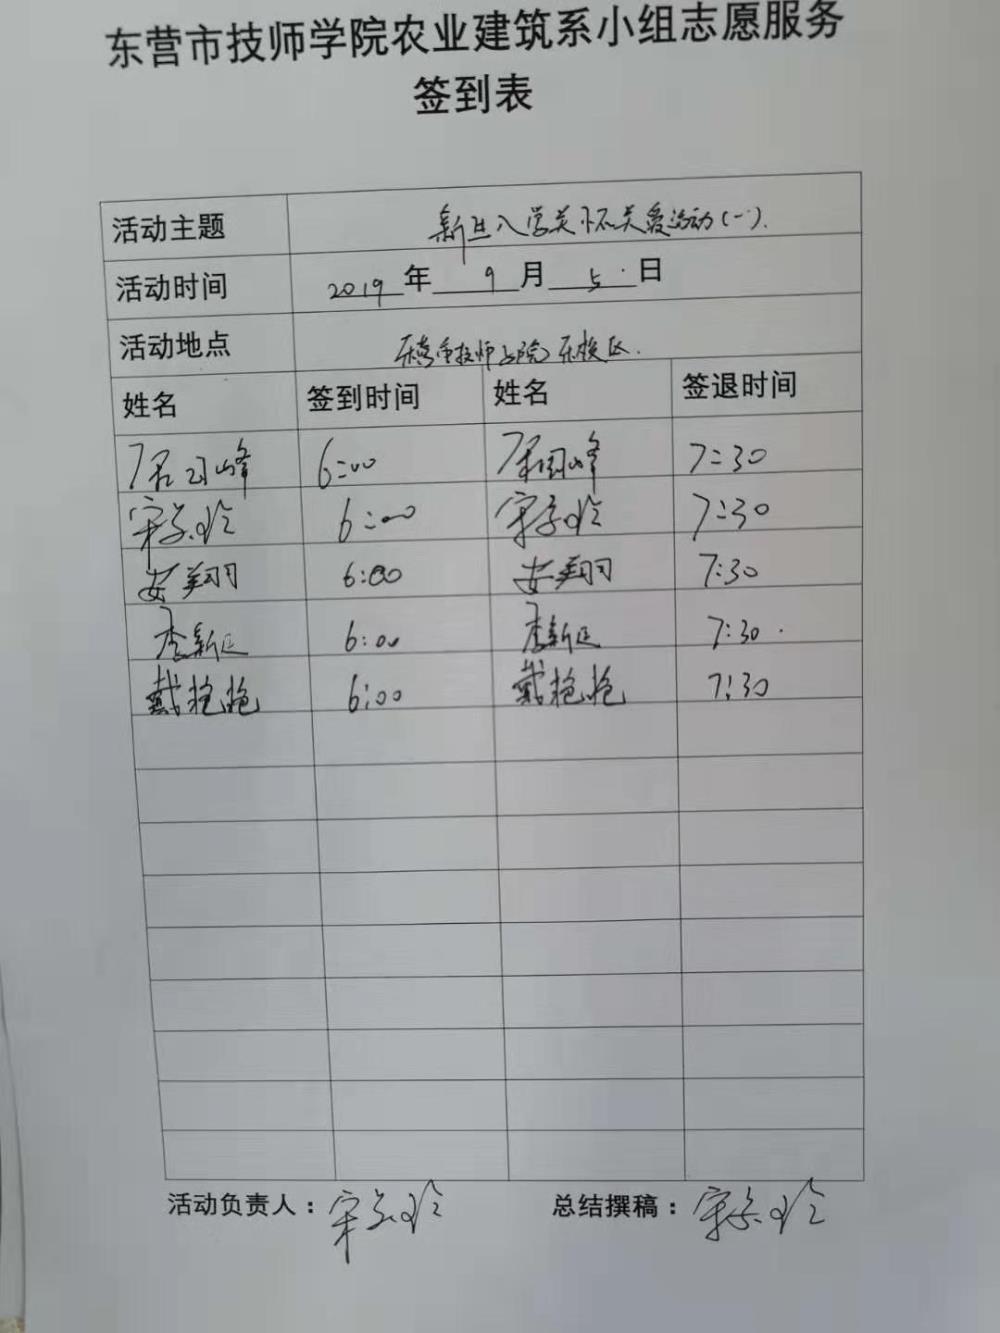 东营市技师学院农业建筑系小组志愿服务
签到表
活动主题 新生入学关怀关爱活动(一).
活动时间 2019年 9 月 5 日
活动地点 东营市技师学院东校区.
姓名 签到时间 姓名 签退时间
峰 6:00 峰 7:30
宋 玲 6:00 宋 玲 7:30
安翔 6:00 安翔 7:30
李新 6:00 李新 7:30
戴艳艳 6:00 戴艳艳 7:30
活动负责人：宋 玲 总结撰稿：宋 玲